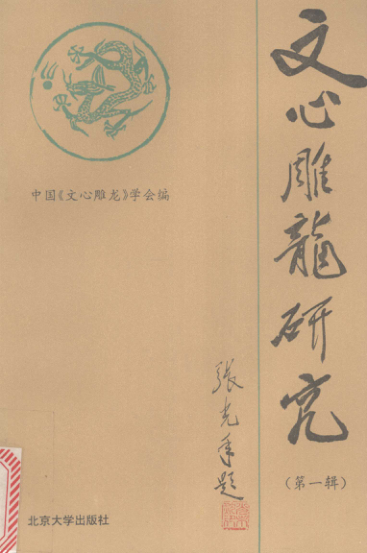 文心雕龍研究
(第一辑)
中国《文心雕龙》学会编
張光年題
北京大学出版社